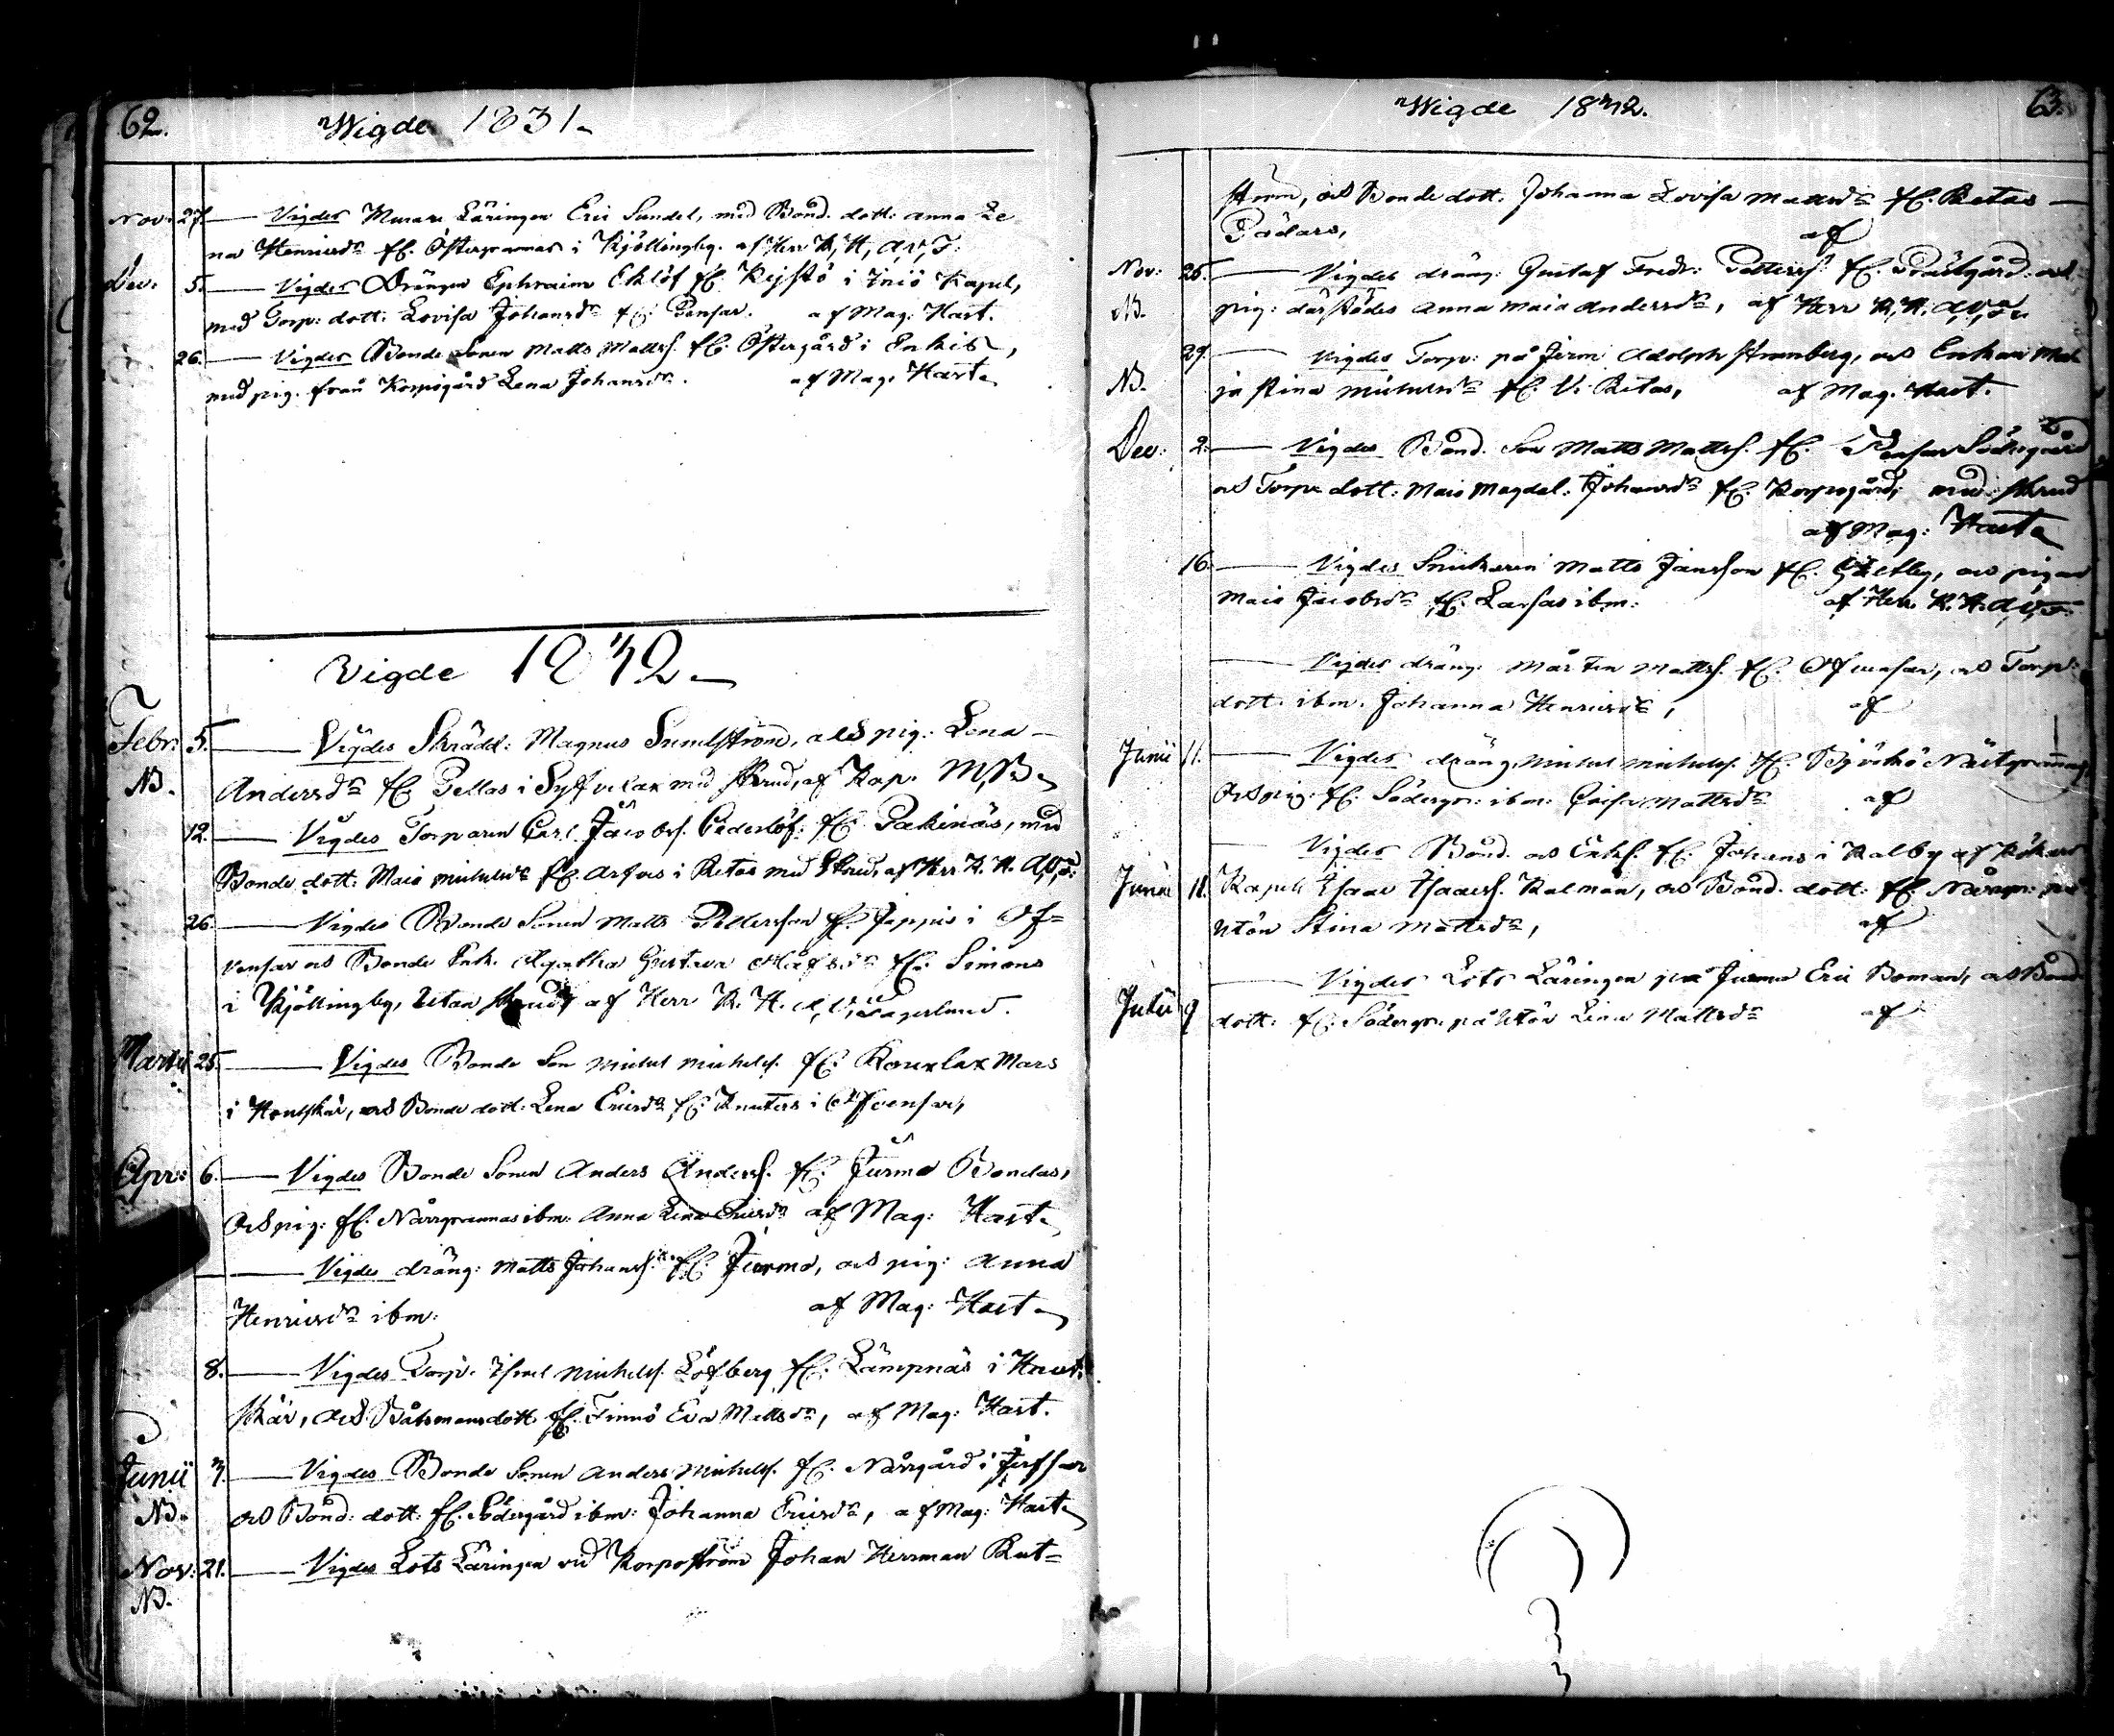 62.
Wigde 1831.
Nov: 27. Vigdes Murare Läringen Eric Sundel, med Bond. dott: Anna Le
na Henricsdr fr. Östergrannas i Kjöllingby. af Herr K, H, A, v, F:
Dec: 5. Vigdes Drängen Ephraim Eklöf fr. Kejstö i Iniö Kapel,
med Torp: dott: Lovisa Johansdr fr: Pensar. af Mag: Hast.
26. Vigdes Bonde Sonen Matts Matts. fr. Östergård i Enkis,
med pig. från Korpogård Lena Johansdr. af Mag: Hast.
Vigde 1832.
Febr: 5. Vigdes Skrädd: Magnus Sundström, och pig: Lena
NB. Andersdr fr Pellas i Sylfvelax med skrud, af Kap. M, B.
12. Vigdes Torparen Carl Jacobs. Cederlöf: fr. Pakinäs, med
Bonde dott: Maia Michelsdr fr. Arfvas i Retas med Skrud, af Herr K. H. A, v, F.
26. Vigdes Bonde Sonen Matts Pettersson fr. Joppis i Of=
vensar och Bonde Enk. Agatha Gustava Olofsdr fr. Simons
i Kjöllingby, utan skrud, af Herr K. H. A, v, Fagerlund.
Martii 25. Vigdes Bonde Son Michel Michels. fr. Kouxlax Mars
i Houtskär, och Bonde dott: Lena Ericsdr fr. Knuters i Ofvensar,
Apr: 6. Vigdes Bonde Sonen Anders Anders. fr. Jurmo Bondas,
och pig: fr. Norrgrannas ibm: Anna Lena Ericsdr af Mag: Hast.
Vigdes dräng: Matts Johans. fr. Jurmo, och pig: Anna
Henricsdr ibm: af Mag: Hast.
8. Vigdes Torp. Israel Michels. Löfberg fr. Lämpnäs i Hout
skär, och Båtsmansdott fr. Finnö Eva Mattsdr, af Mag: Hast.
Junii 3. Vigdes Bonde Sonen Anders Michels. fr. Norrgård i Jerfsar
NB. och Bond: dott: fr. Södergård ibm: Johanna Ericsdr, af Mag: Hast.
Nov: 21. Vigdes Lots Läringen vid Korpoström Johan Herrman Rut=
NB.
Wigde 1832.
63.
ström, och Bonde dott. Johanna Lovisa Mattsdr fr. Retas
Pädars, af
Nov: 25. Vigdes dräng: Gustaf Fredr: Petters. fr. Prästgård. och
NB. pig: därstädes Anna Maia Andersdr, af Herr K, H. A, v, F.
27. Vigdes Torp: på Jerm Adolph Stromberg, och Enkan Ma
NB. ja Stina Michelsdr fr. V. Retas, af Mag. Hast.
Dec: 2. Vigdes Bond. Son Matts Matts. fr. Pensar Södergård
och Torp dott: Maia Magdal: Johansdr fr. Korpogård, med skrud
af Mag: Hast
16. Vigdes Snickaren Matts Jansson fr. Gäetby, och pigan
Maia Jacobsdr fr. Larsas ibm: af Herr K. H. A, v, F.
Vigdes dräng: Mårten Matts. fr. Ofvensar, och Torp:
dott: ibm. Johanna Henricsdr, af
Junii 11. Vigdes dräng Michel Michels. fr. Björkö Nästgrannas
och pig: fr. Södergr: ibm: Caisa Mattsdr af
Vigdes Bond. och Enkl. fr. Johans i Kalby af Kökars
Junii 11. Kapell Isaac Isaacs. Kalman, och Bond. dott: fr. Norrgr: på
Utön Stina Mattsdr, af
Vigdes Lots Läringen på Jurmo Eric Boman, och Bond
Julii 9 dott: fr. Södergr: på Utön Lena Mattsdr af